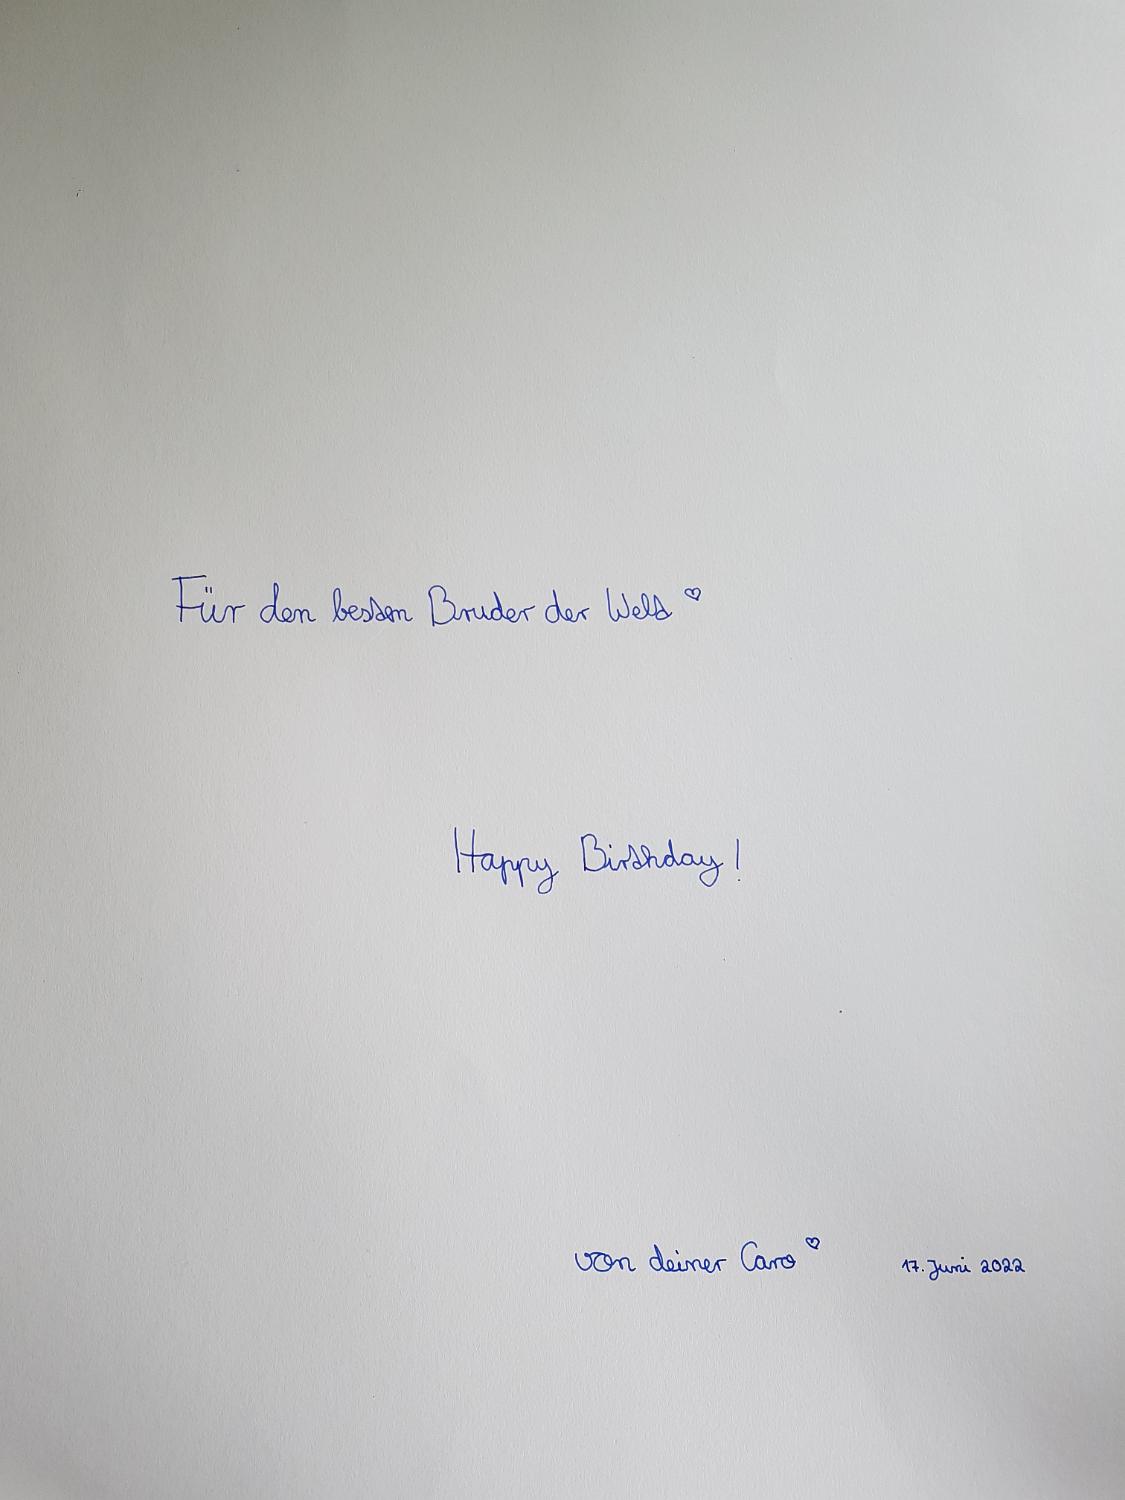 Für den besten Bruder der Welt ♡
Happy Birthday!
von deiner Caro ♡ 17. Juni 2022